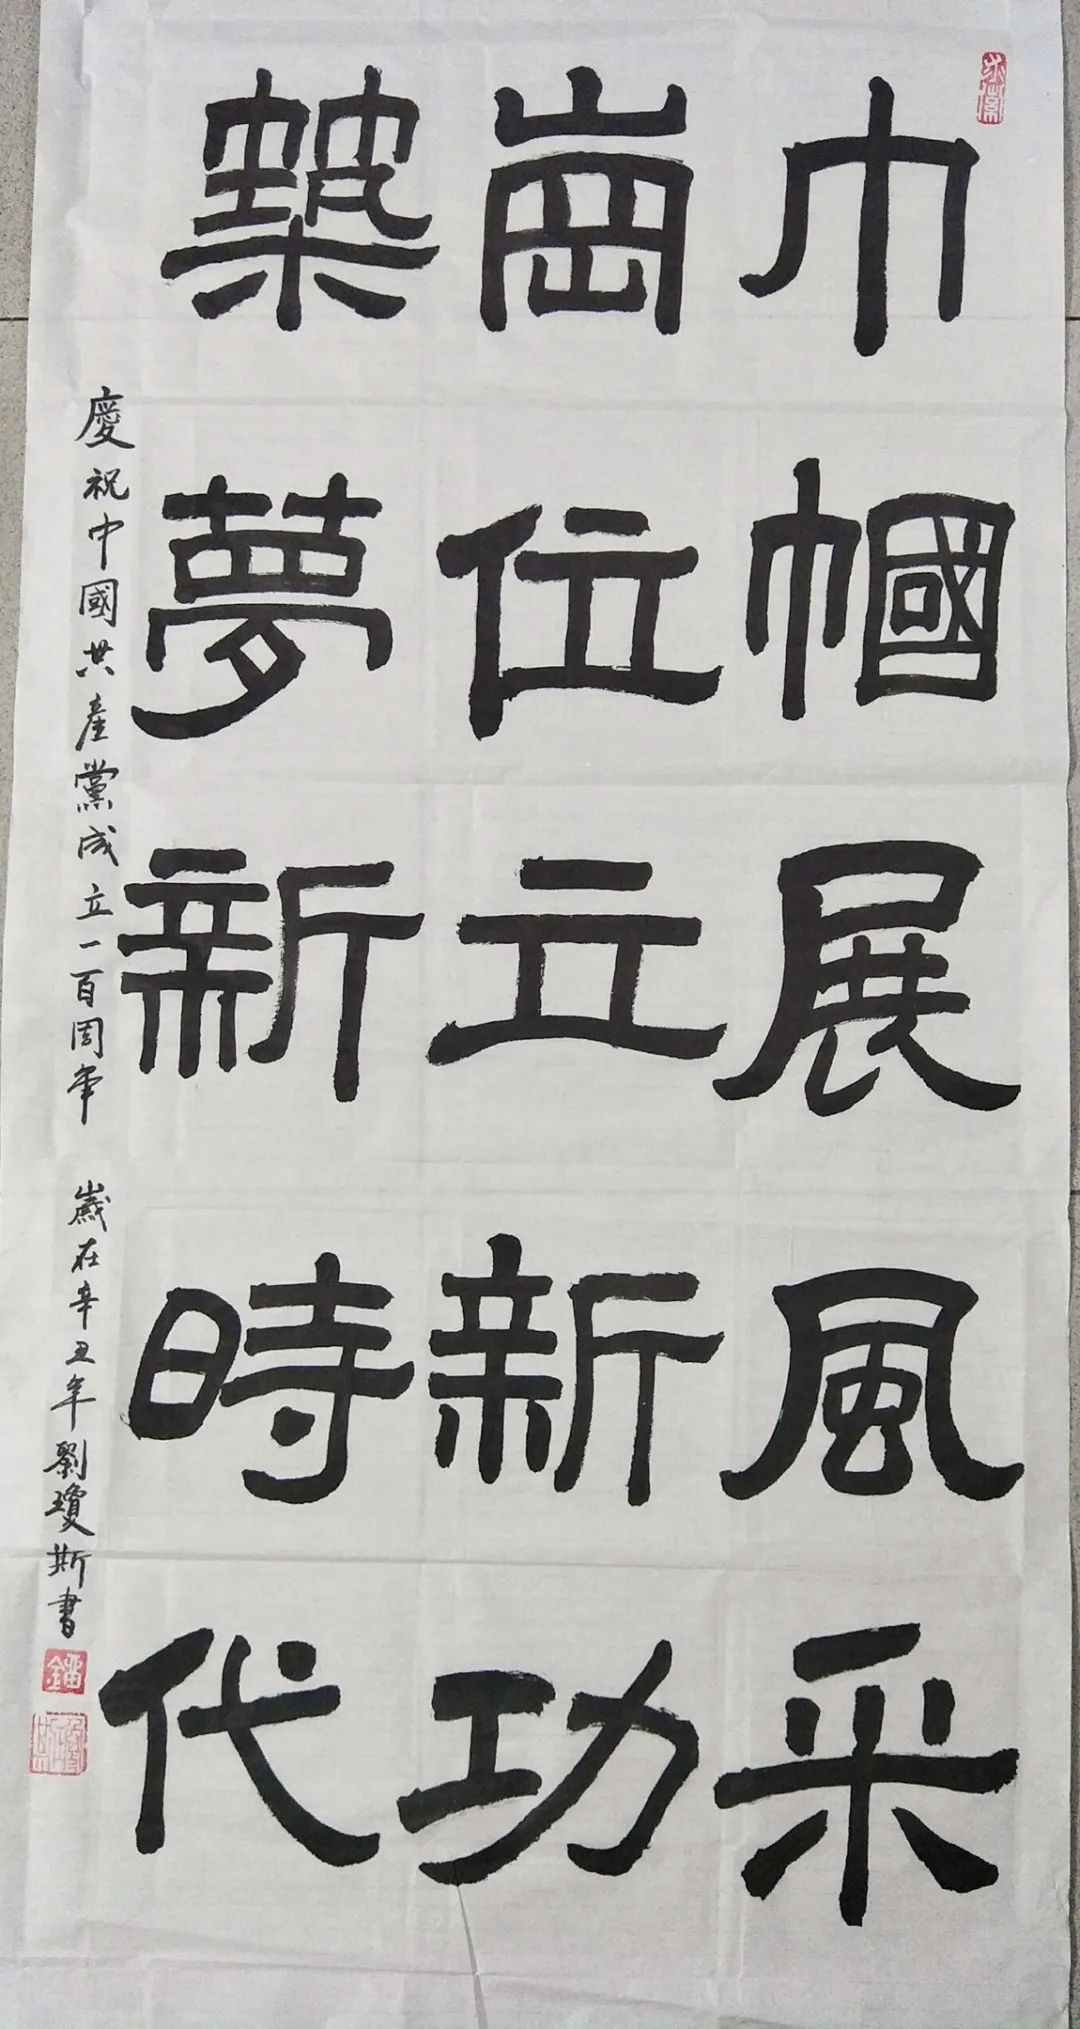 巾幗展風采
崗位立新功
築夢新時代
慶祝中國共產黨成立一百周年 歲在辛丑年劉瓊斯書